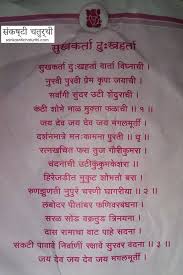 संकष्टी चतुर्थी
सुखकर्ता दुःखहर्ता
सुखकर्ता दुःखहर्ता वार्ता विघ्नाची
नुरवी पुरवी प्रेम कृपा जयाची ।
सर्वांगी सुंदर उटी शेंदुराची
कंठी शोभे माळ मुक्ता फळाची ॥ १ ॥
जय देव जय देव जय मंगलमूर्ती
दर्शनमात्रे मनःकामना पुरती ॥ धृ ॥
रत्नखचित फरा तुज गौरीकुमरा
चंदनाची उटी कुंकुमकेशरा ।
हिरेजडीत मुकुट शोभतो बरा
रुणझुणती नुपुरे चरणी घागरीया ॥ २ ॥
लंबोदर पीतांबर फणिवरबंधना
सरळ सोंड वक्रतुंड त्रिनयना ।
दास रामाचा वाट पाहे सदना
संकटी पावावे निर्वाणी रक्षावे सुरवर वंदना ॥ ३ ॥
जय देव जय देव जय मंगलमूर्ती